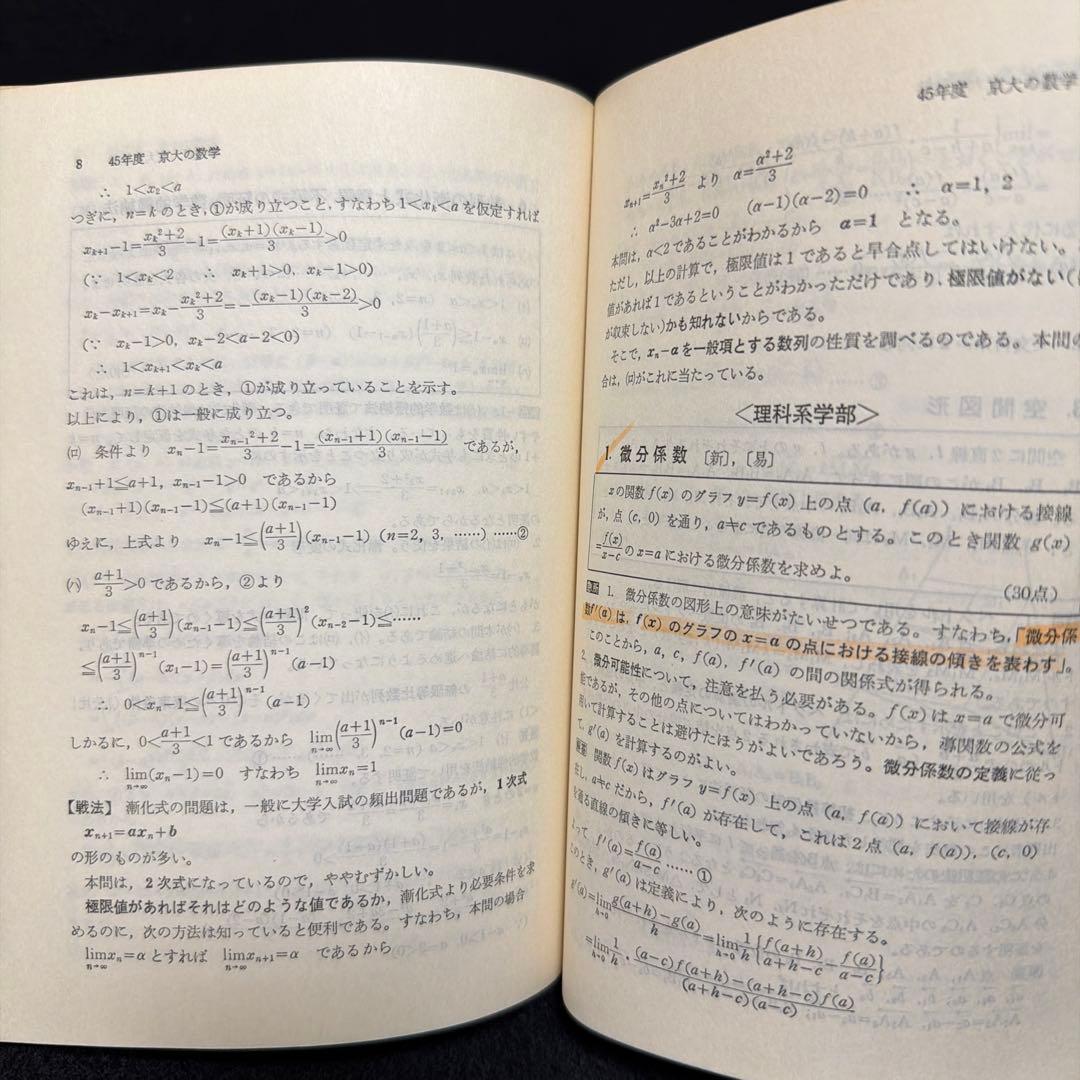 8 45年度 京大の数学
∴ 1<x₂<a
つぎに，n=k のとき，①が成り立つこと，すなわち 1<xₖ<a を仮定すれば
xₖ₊₁−1=(xₖ²+2)/3−1=(xₖ+1)(xₖ−1)/3>0
(∵ 1<xₖ<2 ∴ xₖ+1>0, xₖ−1>0)
xₖ−xₖ₊₁=xₖ−(xₖ²+2)/3=−(xₖ−1)(xₖ−2)/3>0
(∵ xₖ−1>0, xₖ−2<a−2<0)
∴ 1<xₖ₊₁<xₖ<a
これは，n=k+1 のとき，①が成り立っていることを示す。
以上により，①は一般に成り立つ。
(ロ) 条件より xₙ−1=(xₙ₋₁²+2)/3−1=(xₙ₋₁+1)(xₙ₋₁−1)/3 であるが，
xₙ₋₁+1≦a+1, xₙ₋₁−1>0 であるから
(xₙ₋₁+1)(xₙ₋₁−1)≦(a+1)(xₙ₋₁−1)
ゆえに，上式より xₙ−1≦((a+1)/3)(xₙ₋₁−1) (n=2, 3, ……) ……②
(ハ) (a+1)/3>0 であるから，②より
xₙ−1≦((a+1)/3)(xₙ₋₁−1)≦((a+1)/3)²(xₙ₋₂−1)≦……
≦((a+1)/3)ⁿ⁻¹(x₁−1)=((a+1)/3)ⁿ⁻¹(a−1)
∴ 0<xₙ−1≦((a+1)/3)ⁿ⁻¹(a−1)
しかるに，0<(a+1)/3<1 であるから lim[n→∞]((a+1)/3)ⁿ⁻¹(a−1)=0
∴ lim[n→∞](xₙ−1)=0 すなわち lim[n→∞]xₙ=1
【戦法】 漸化式の問題は，一般に大学入試の頻出問題であるが，1次式
xₙ₊₁=axₙ+b
の形のものが多い。
本問は，2次式になっているので，ややむずかしい。
極限値があればそれはどのような値であるか，漸化式より必要条件を求
めるのに，次の方法は知っていると便利である。すなわち，本問の場合
lim[n→∞]xₙ=α とすれば lim[n→∞]xₙ₊₁=α であるから
45年度 京大の数学
xₙ₊₁=(xₙ²+2)/3 より α=(α²+2)/3
∴ α²−3α+2=0 (α−1)(α−2)=0 ∴ α=1, 2
本問は，α<2であることがわかるから α=1 となる。
ただし，以上の計算で，極限値は1であると早合点してはいけない。
値があれば1であるということがわかっただけであり，極限値がない(
が収束しない)かも知れないからである。
そこで，xₙ−α を一般項とする数列の性質を調べるのである。本問の
合は，(ロ)がこれに当たっている。
<理科系学部>
1. 微分係数 [新],[易]
xの関数 f(x) のグラフ y=f(x) 上の点 (a, f(a)) における接線
が，点 (c, 0) を通り，a≠c であるものとする。このとき関数 g(x)
=f(x)/(x−c) の x=a における微分係数を求めよ。
(30点)
1. 微分係数の図形上の意味がたいせつである。すなわち，「微分係
数f′(a) は，f(x) のグラフの x=a の点における接線の傾きを表わす」。
このことから，a, c, f(a), f′(a) の間の関係式が得られる。
2. 微分可能性について，注意を払う必要がある。f(x) は x=a で微分可
能であるが，その他の点についてはわかっていないから，導関数の公式を
用いて計算することは避けたほうがよいであろう。微分係数の定義に従っ
て，g′(a) を計算するのがよい。
解答 関数 f(x) はグラフ y=f(x) 上の点 (a, f(a)) において接線が存
在し，a≠c だから，f′(a) が存在して，これは2点 (a, f(a)), (c, 0)
を通る直線の傾きに等しい。
よって f′(a)=f(a)/(a−c) ……①
このとき，g′(a) は定義により，次のように存在する。
g′(a)=lim[h→0](g(a+h)−g(a))/h=lim[h→0](1/h){f(a+h)/(a+h−c)−f(a)/(a−c)}
=lim[h→0](1/h)·((a−c)f(a+h)−(a+h−c)f(a))/((a+h−c)(a−c))